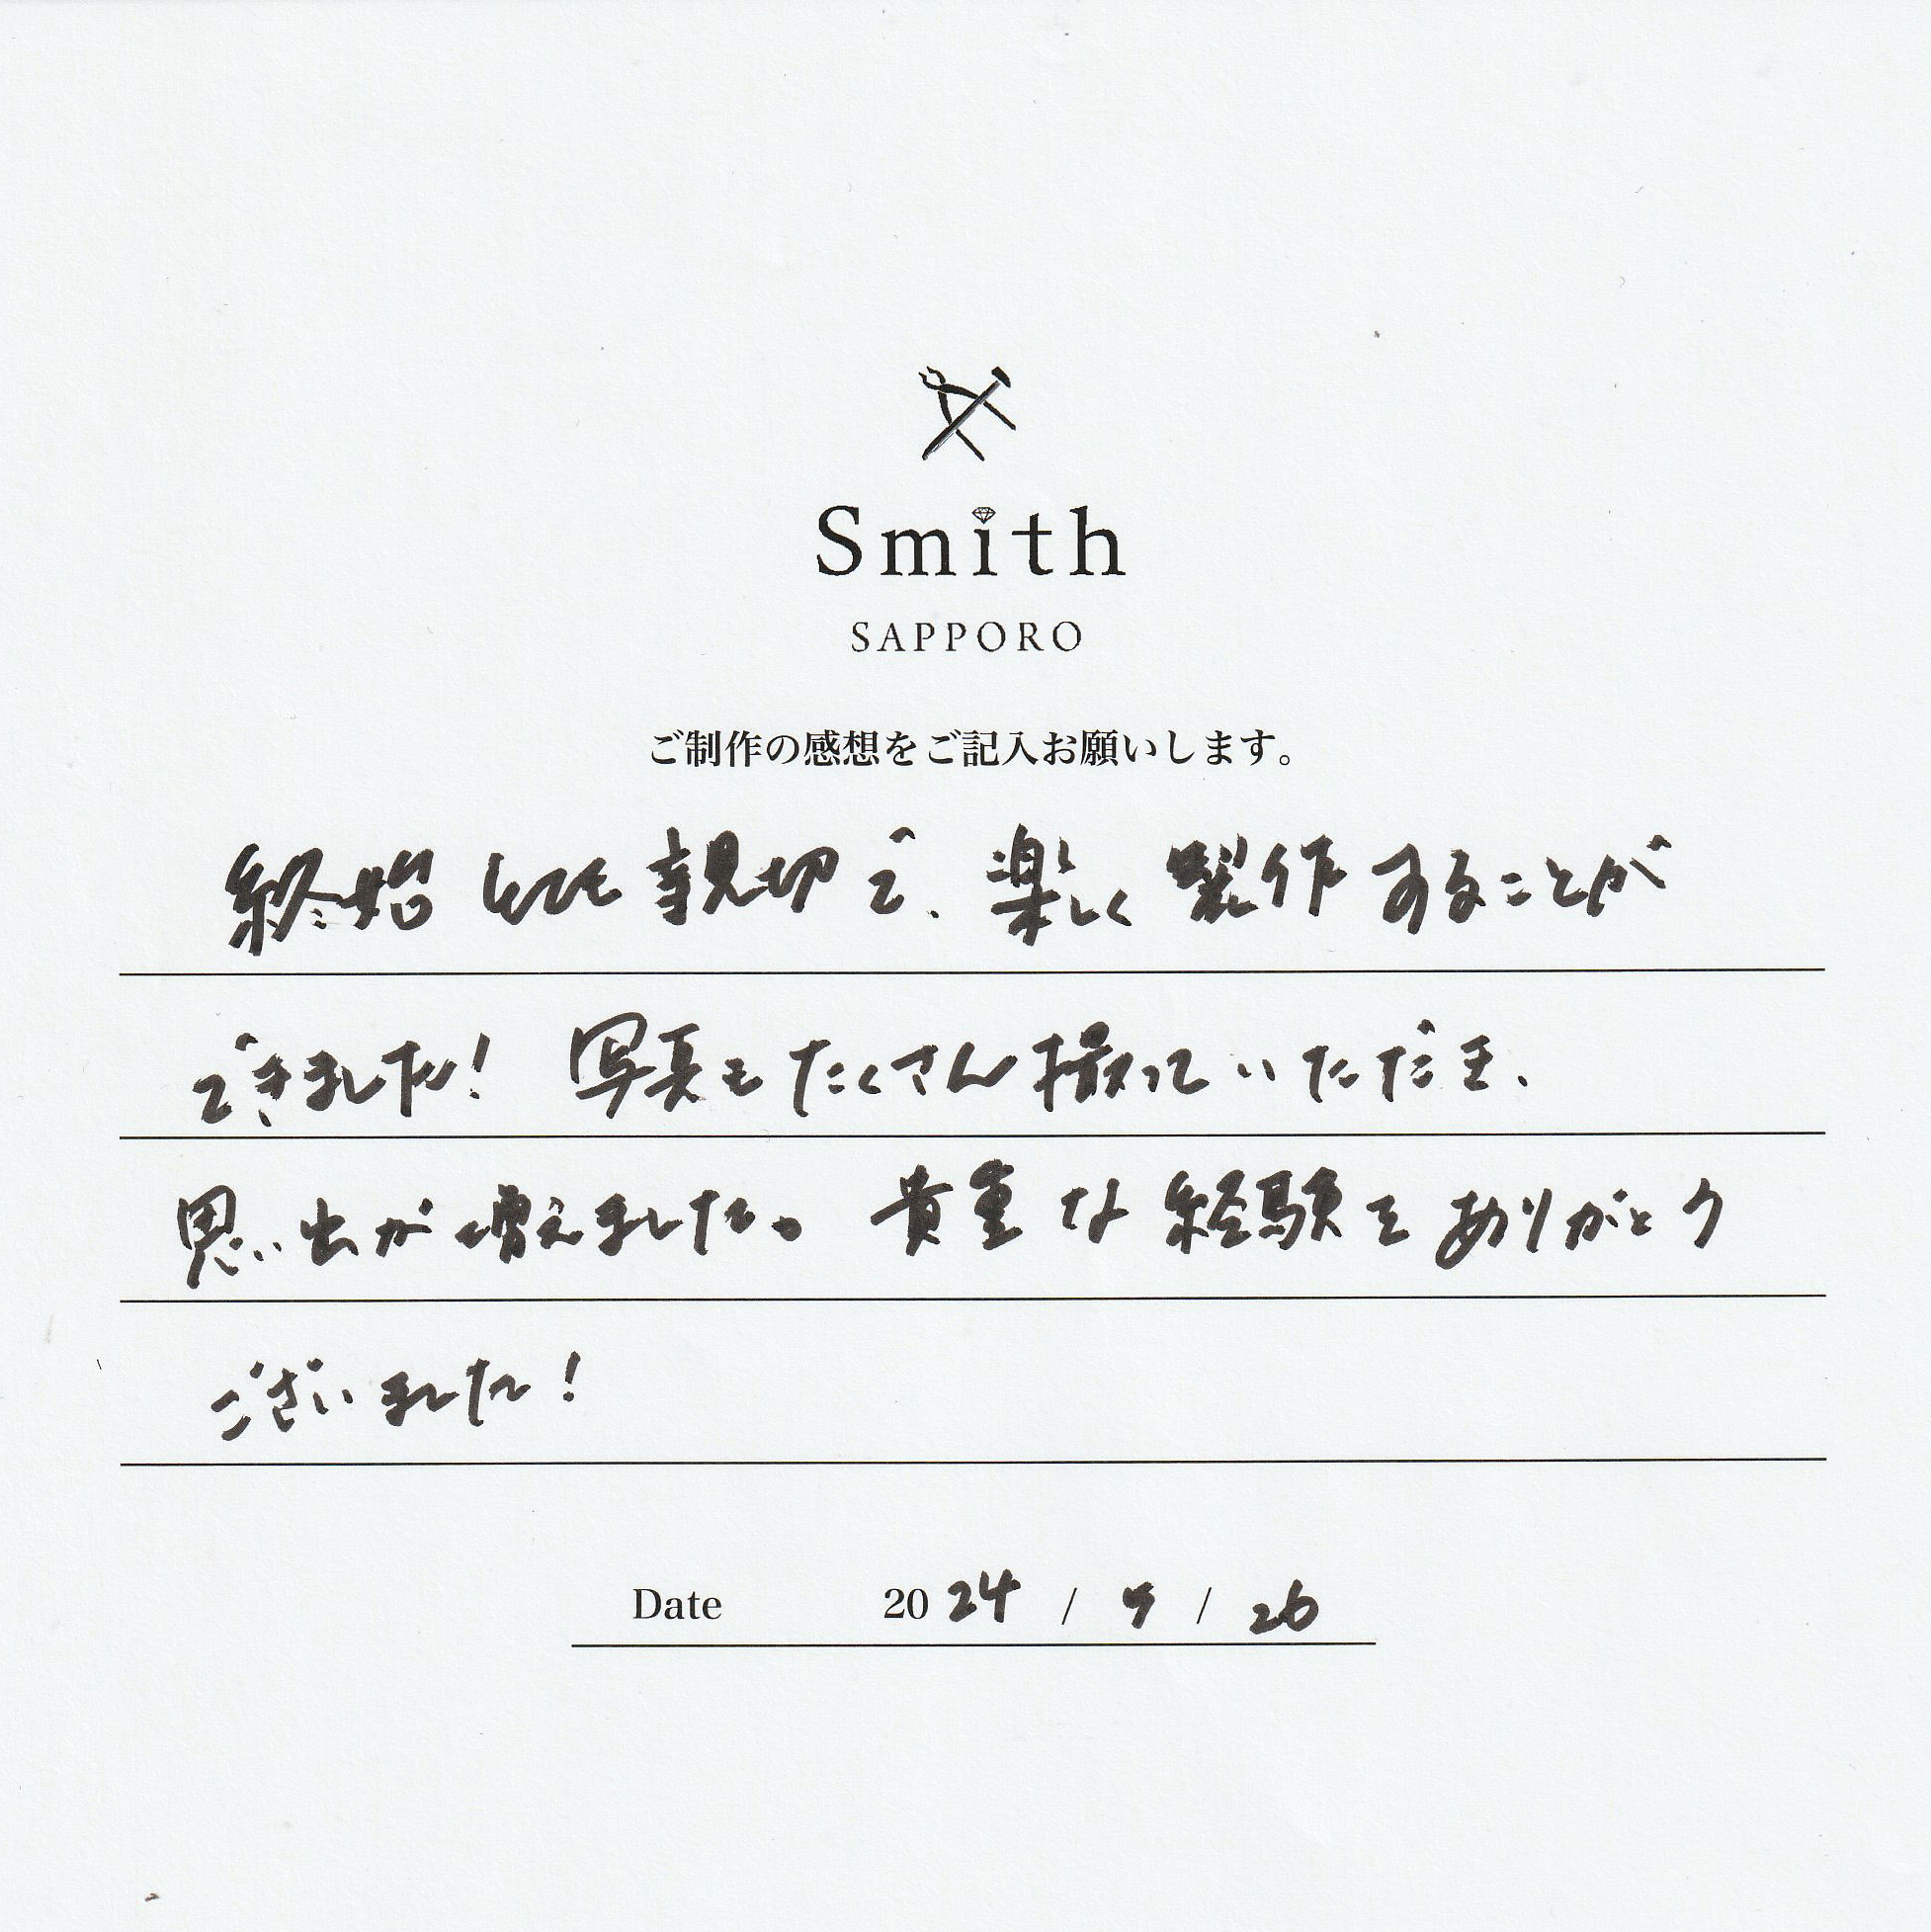 Smith
SAPPORO
ご制作の感想をご記入お願いします。
終始とても親切で、楽しく製作することが
できました! 写真もたくさん撮っていただき、
思い出が増えました。貴重な経験をありがとう
ございました!
Date 2024 / / 26